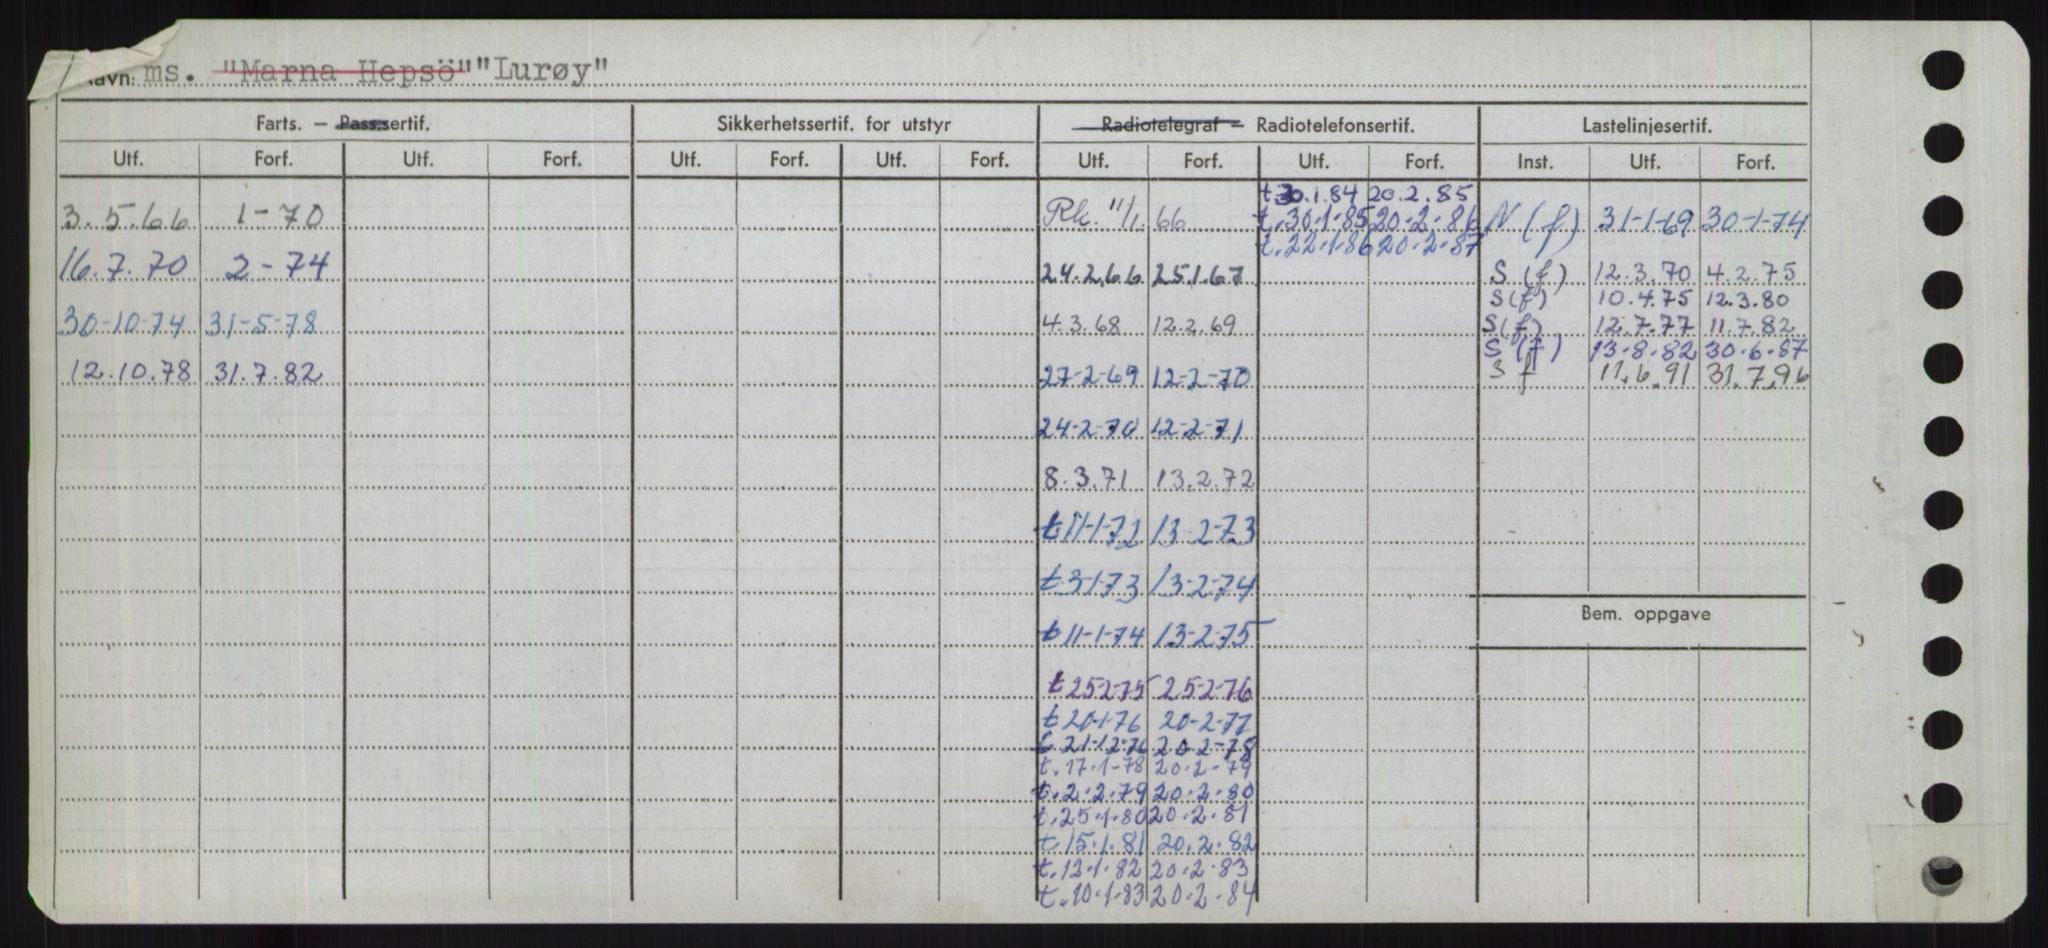 Navn: ms. "Marna Hepsö" "Lurøy"
Farts. – Pass.sertif. Sikkerhetssertif. for utstyr Radiotelegraf – Radiotelefonsertif. Lastelinjesertif.
Utf. Forf. Utf. Forf. Utf. Forf. Utf. Forf. Utf. Forf. Utf. Forf. Inst. Utf. Forf.
t.30.1.84 20.2.85
3.5.66 1-70 Rk. 11/1.66 t.30.1.85 20.2.86 N (f) 31-1-69 30-1-74
t.22.1.86 20.2.87
16.7.70 2-74 24.2.66 25.1.67 S (f) 12.3.70 4.2.75
S (f) 10.4.75 12.3.80
30-10-74 31-5-78 4.3.68 12.2.69 S (f) 12.7.77 11.7.82
S (f) 13.8.82 30.6.87
12.10.78 31.7.82 27-2-69 12-2-70 S f 11.6.91 31.7.96
24-2-70 12-2-71
8.3.71 13.2.72
t 11-1-72 13-2-73
t 3-1-73 13-2-74
Bem. oppgave
t 11-1-74 13-2-75
t 25-2-75 25-2-76
t 20-1-76 20-2-77
t. 21-12-76 20.2-78
t. 17.1-78 20.2-79
t. 2.2.79 20.2.80
t. 25.1.80 20.2.81
t. 15.1.81 20.2.82
t. 12.1.82 20.2.83
t. 10.1.83 20.2.84